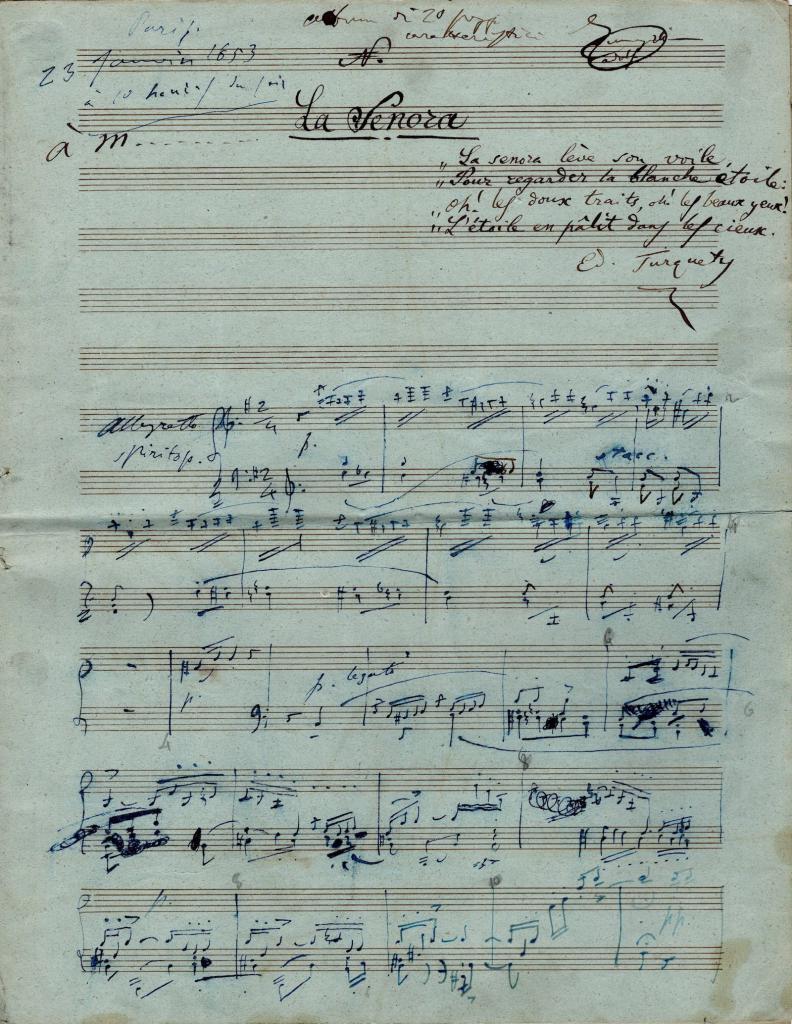 album di 20 pezzi
caratteristici
Paris.
23 Janvier 1853
à 10 heures du soir
N.
La Senora
à M..........
„ La senora lève son voile,
„ Pour regarder la blanche étoile:
oh! les doux traits, oh! les beaux yeux!
„ L'étoile en pâlit dans les cieux.
Ed. Turquety
Allegretto
spiritoso
p.
stacc.
p.
p. legato
4
6
6
8
p.
10
pp